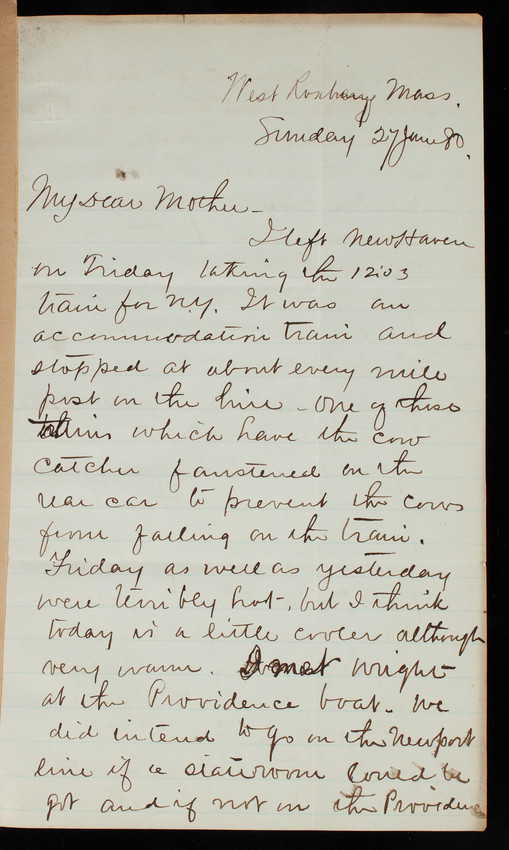 West Roxbury Mass.
Sunday 27 June 80.
My Dear Mother -
I left New Haven
on Friday taking the 12.03
train for N.Y. It was an
accommodation train and
stopped at about every mile
post on the line - one of those
trains which have the cow
catcher fanstened on the
rear car to prevent the cows
from falling on the train.
Friday as well as yesterday
were terribly hot, but I think
today is a little cooler although
very warm. I met Wright
at the Providence boat. We
did intend to go on the Newport
line if a stateroom could be
got and if not on the Providence